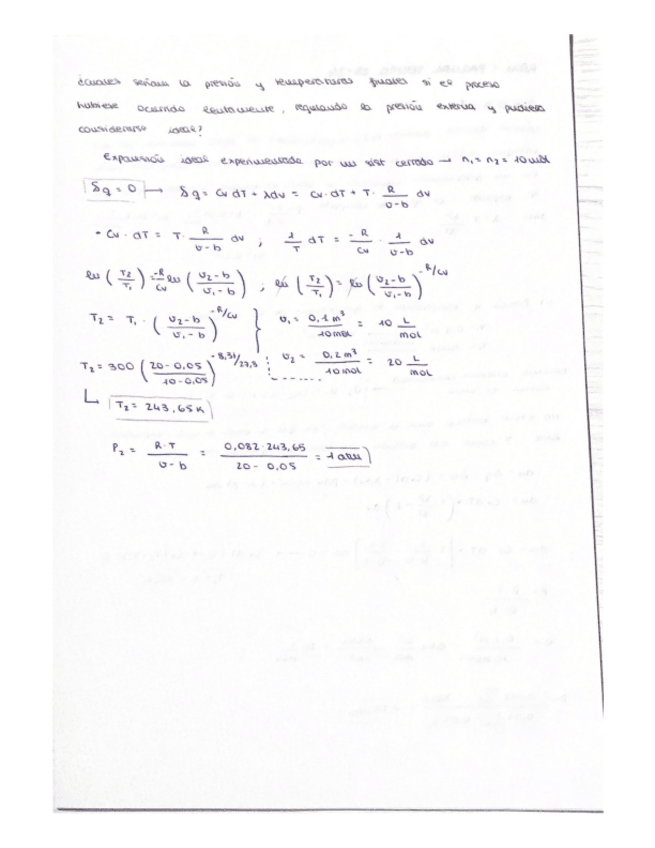 ¿cuales serían la presión y temperaturas finales si el proceso
hubiese ocurrido lentamente, regulando la presión externa y pudiera
considerarse ideal?
Expansión ideal experimentada por un sist cerrado → n₁ = n₂ = 10 mol
δq = 0 → δq = Cv dT + λdv = Cv · dT + T · R/(v-b) dv
- Cv · dT = T · R/(v-b) dv ; 1/T dT = -R/Cv · 1/(v-b) dv
ln (T₂/T₁) = -R/Cv ln ((v₂-b)/(v₁-b)) ; ln (T₂/T₁) = ln ((v₂-b)/(v₁-b))^(-R/Cv)
T₂ = T₁ · ((v₂-b)/(v₁-b))^(-R/Cv) } v₁ = 0,1 m³/10 mol = 10 L/mol
T₂ = 300 ((20-0,05)/(10-0,05))^(-8,31/27,3) v₂ = 0,2 m³/10 mol = 20 L/mol
T₂ = 243,65 K
P₂ = R·T/(v-b) = 0,082·243,65/(20-0,05) = 1 atm